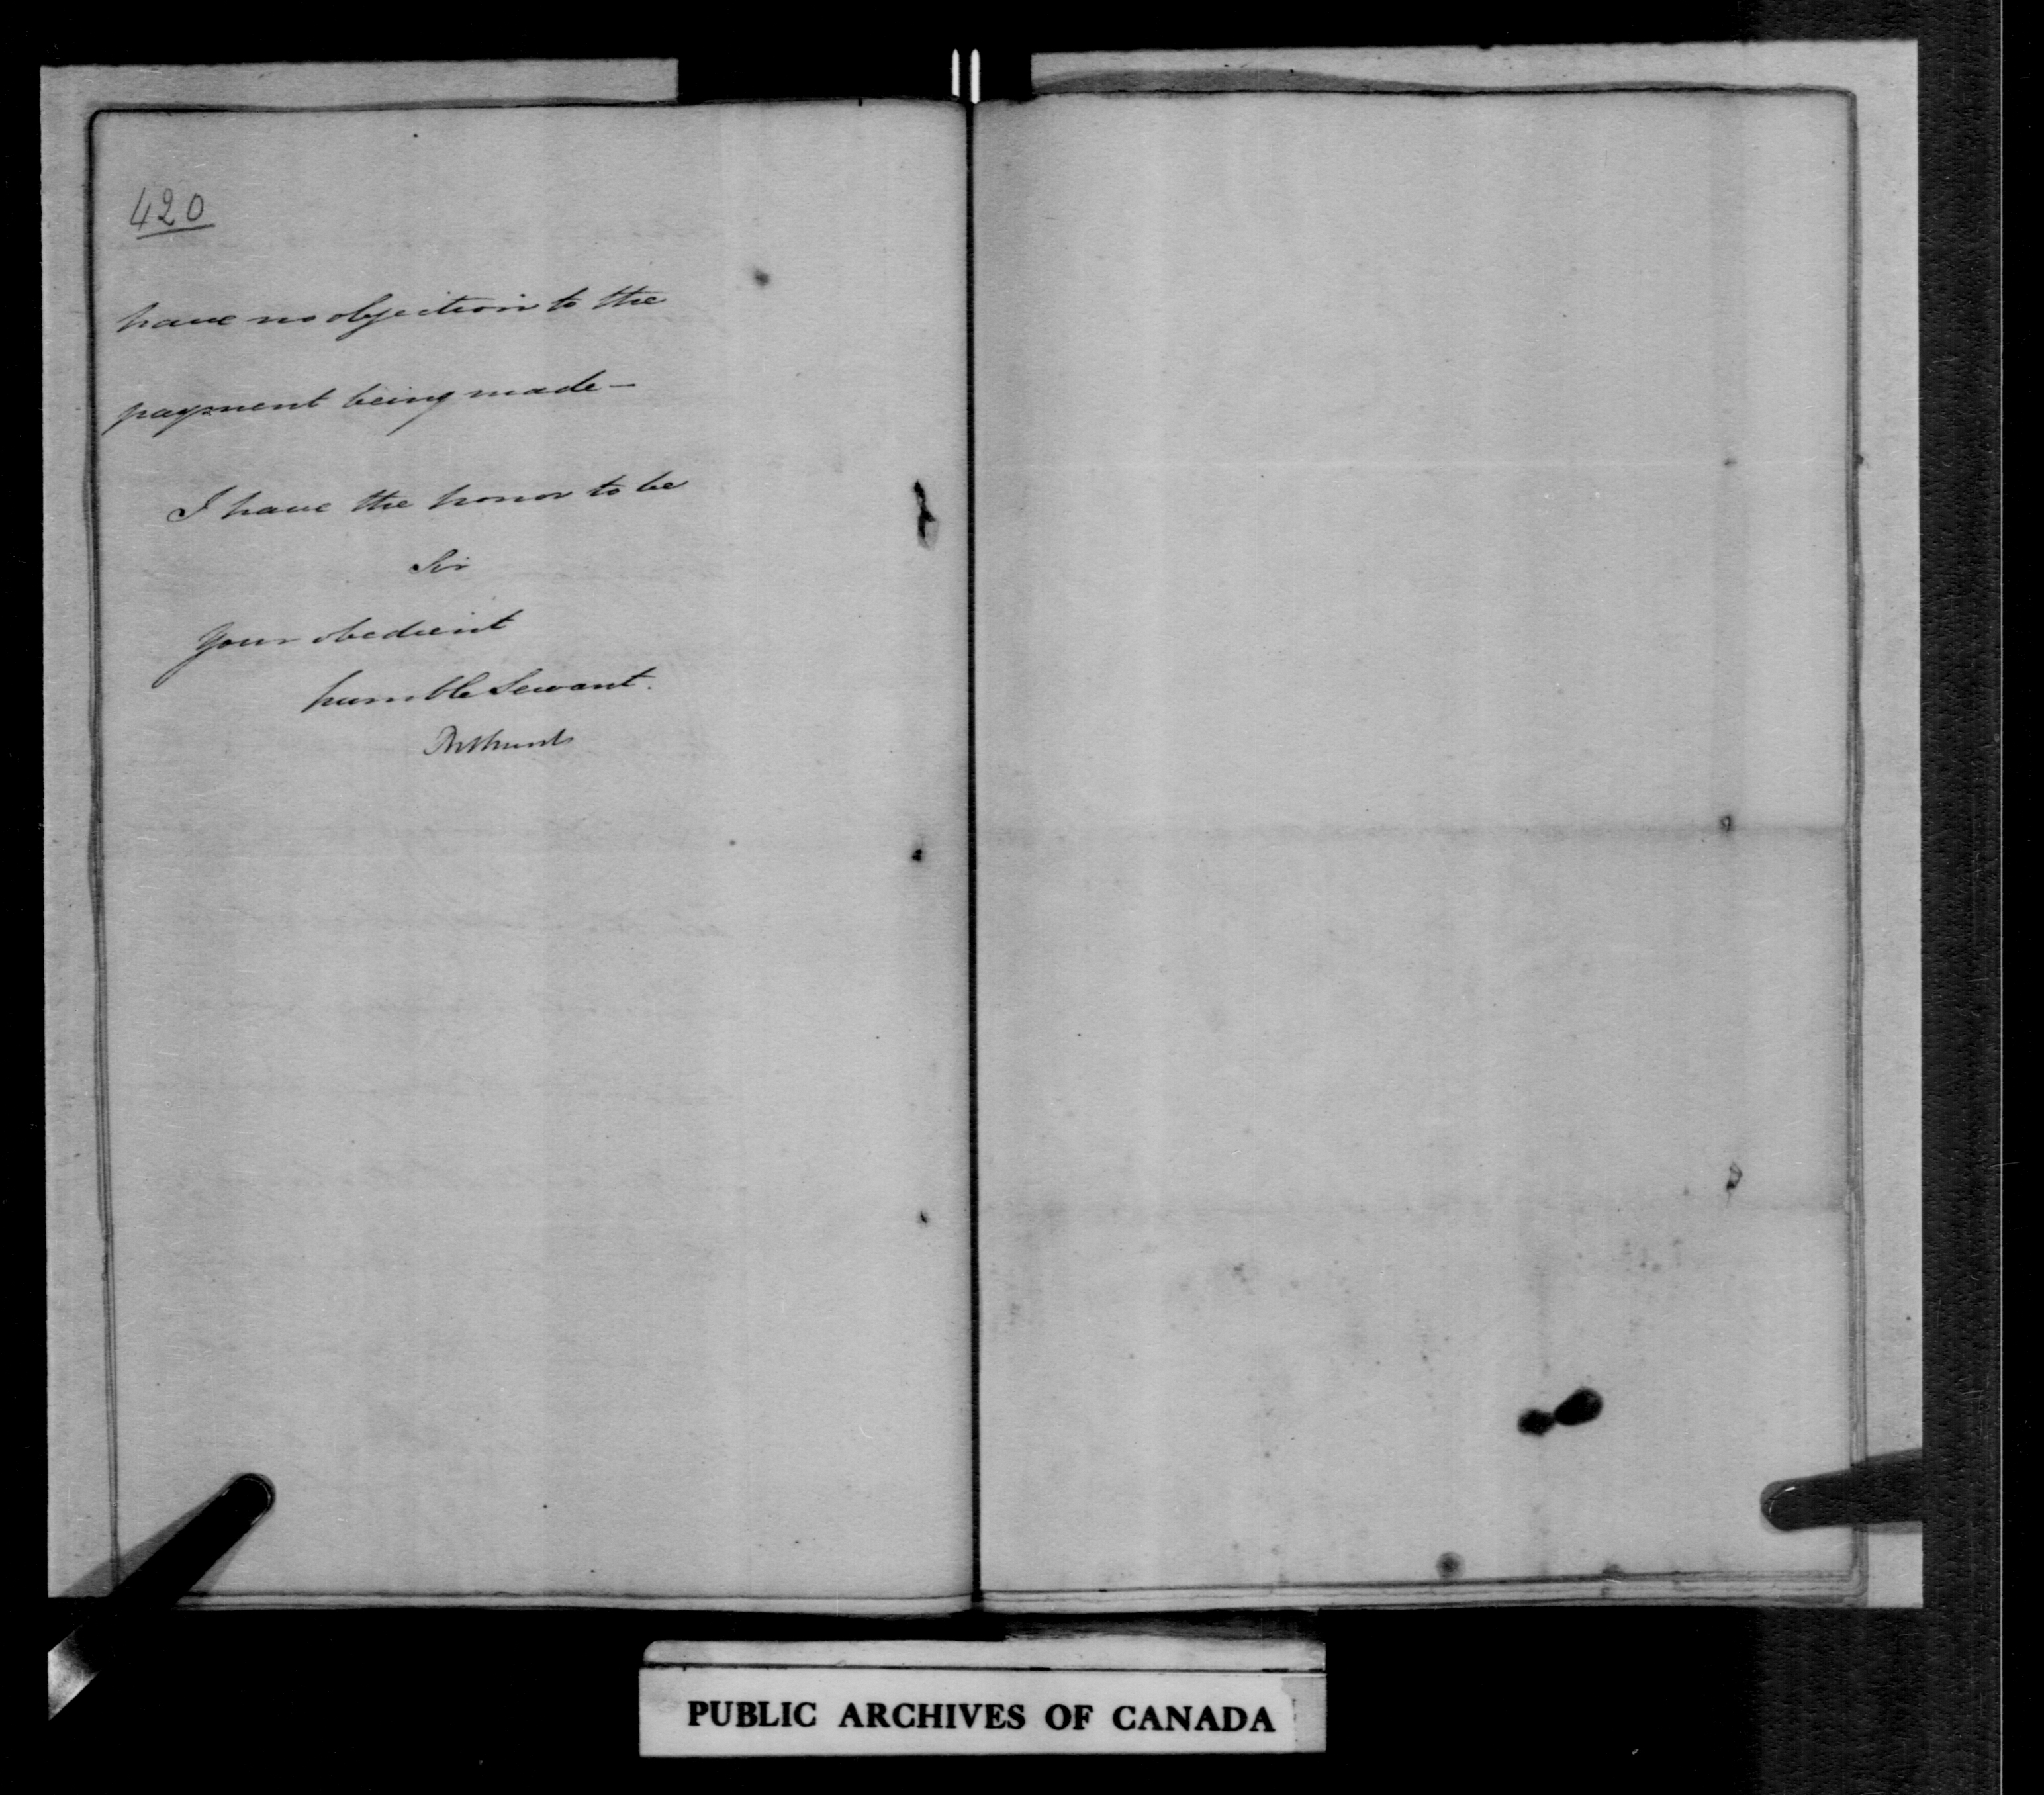 420
have no objection to the
payment being made —
I have the honor to be
Sir
Your obedient
humble Servant.
Bathurst
PUBLIC ARCHIVES OF CANADA